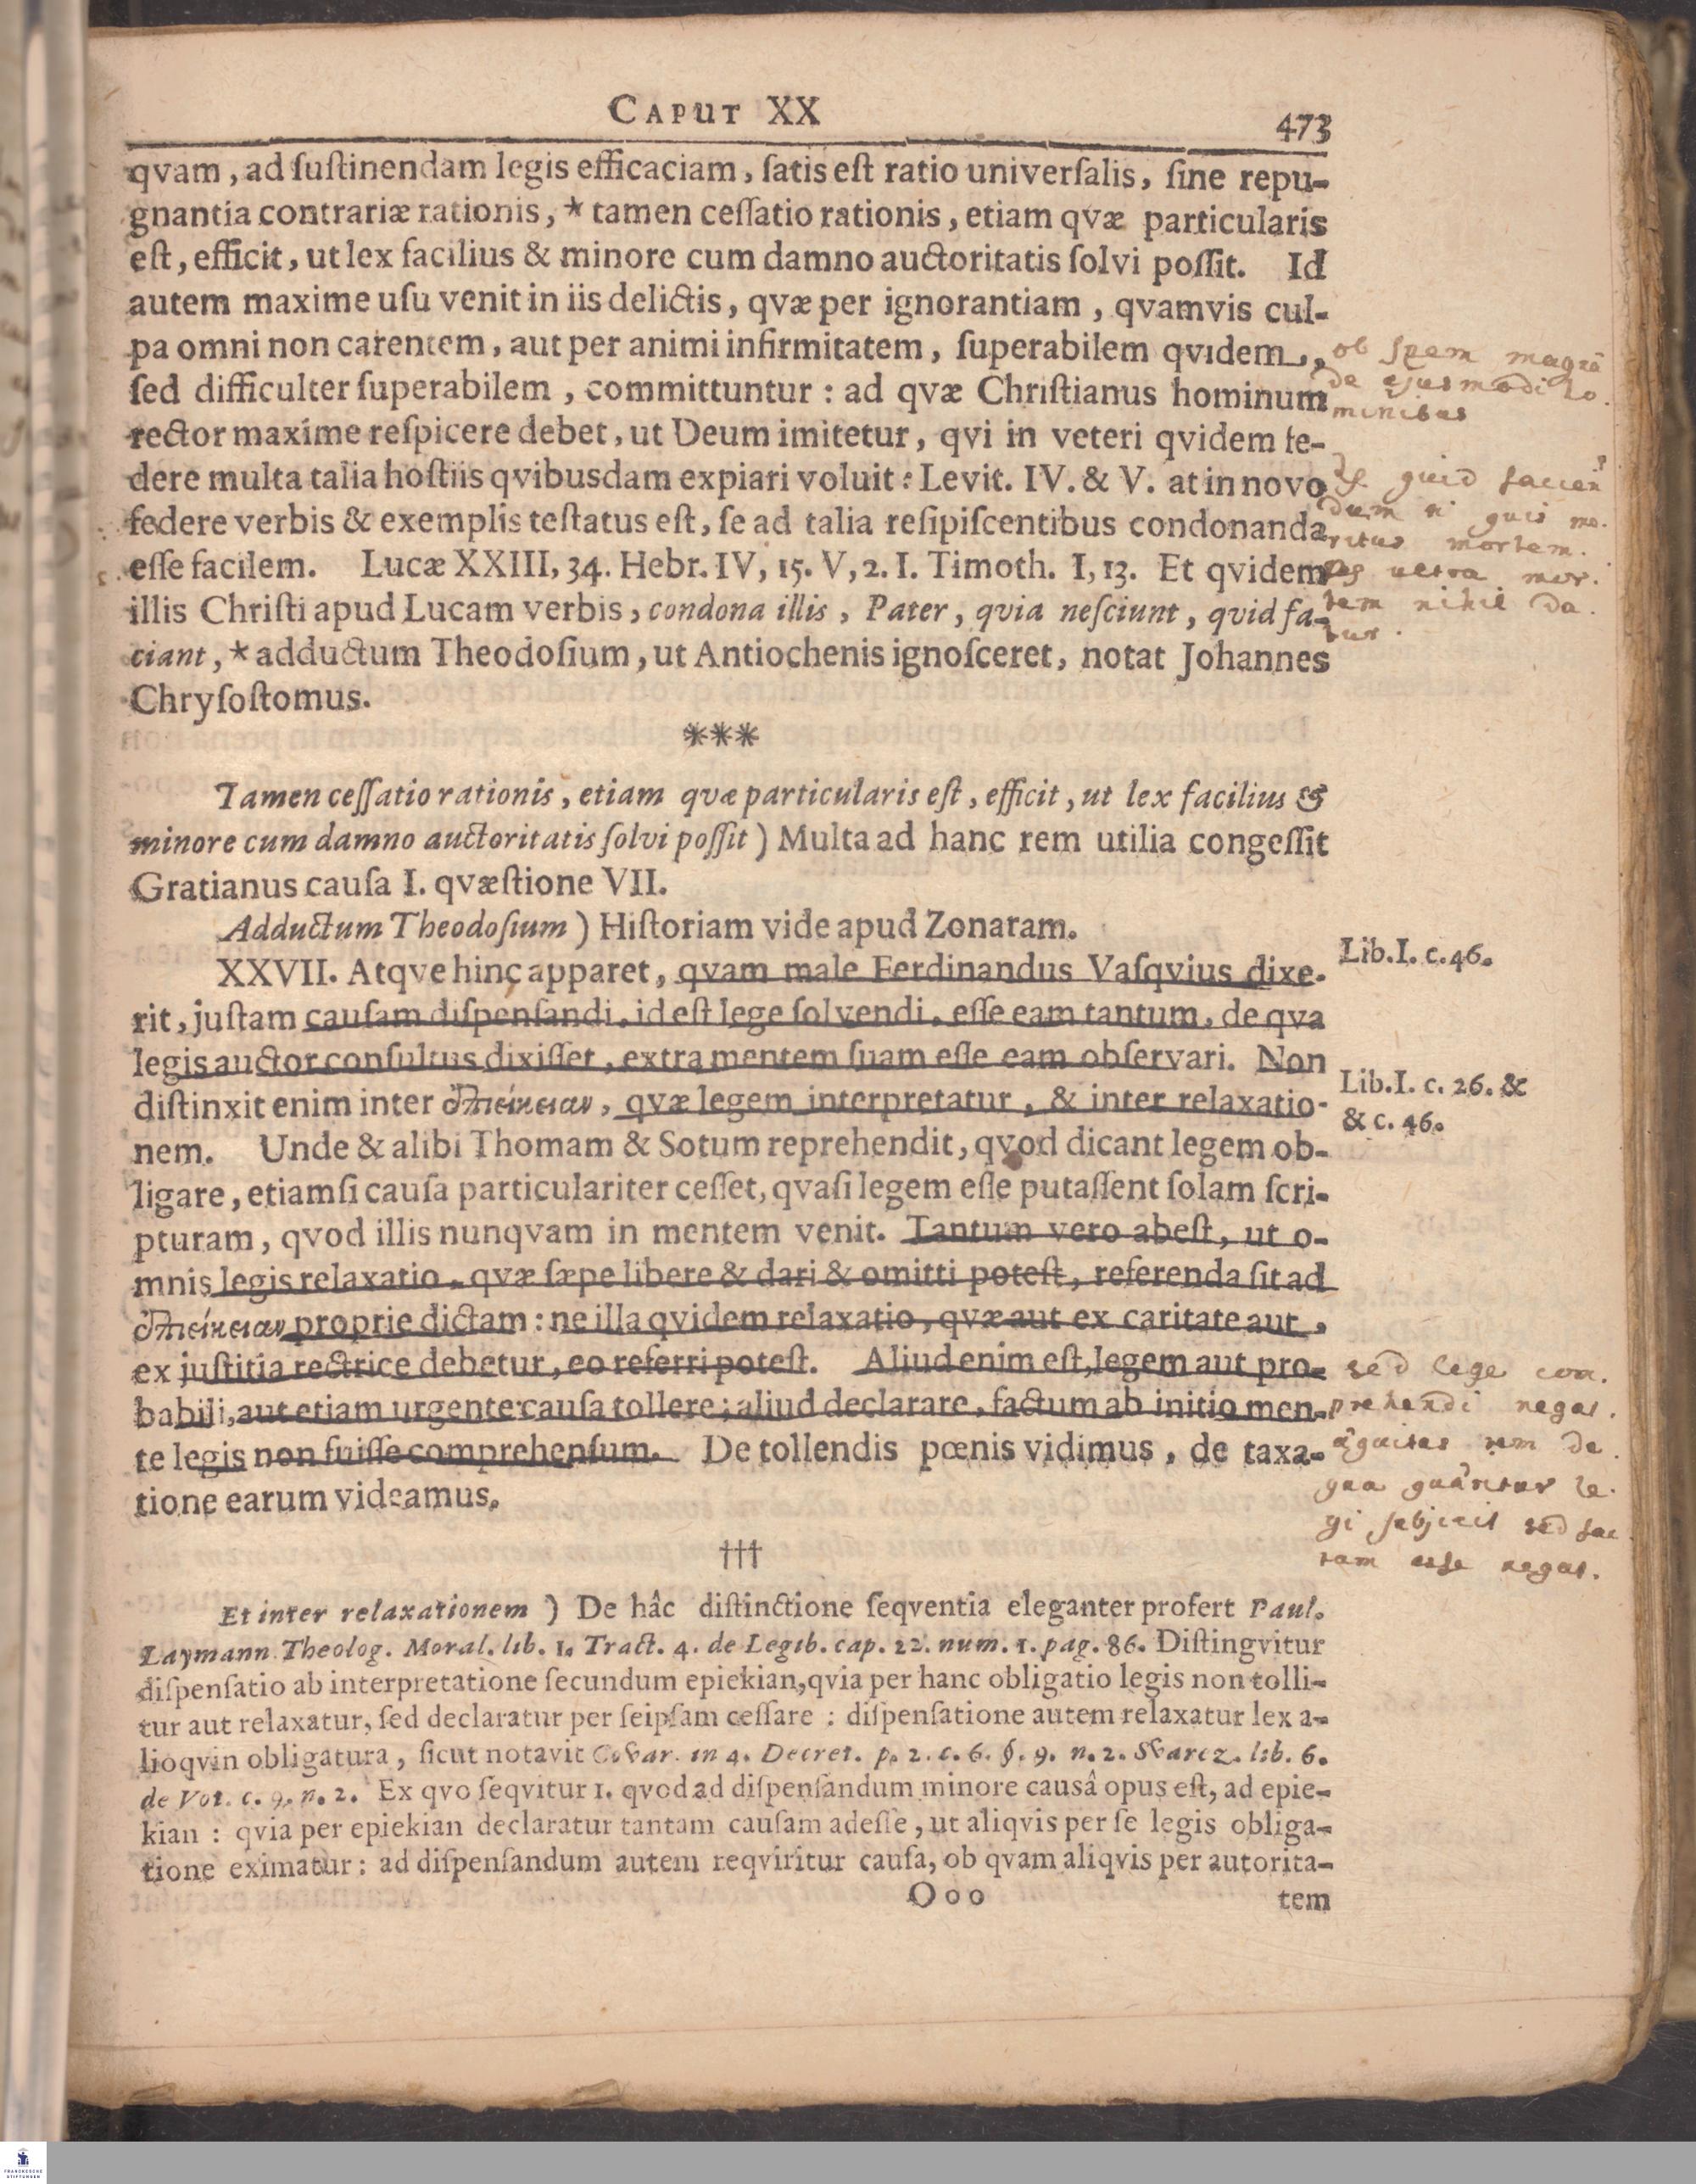 CAPUT XX
473
qvam, ad ſuſtinendam legis efficaciam, ſatis eſt ratio univerſalis, ſine repu-
gnantia contrariæ rationis, * tamen ceſſatio rationis, etiam qvæ particularis
eſt, efficit, ut lex facilius & minore cum damno auctoritatis ſolvi poſſit. Id
autem maxime uſu venit in iis delictis, qvæ per ignorantiam, qvamvis cul-
pa omni non carentem, aut per animi infirmitatem, ſuperabilem qvidem,
ſed difficulter ſuperabilem, committuntur: ad qvæ Chriſtianus hominum
rector maxime reſpicere debet, ut Deum imitetur, qvi in veteri qvidem fe-
dere multa talia hoſtiis qvibusdam expiari voluit: Levit. IV. & V. at in novo
federe verbis & exemplis teſtatus eſt, ſe ad talia reſipiſcentibus condonanda
eſſe facilem. Lucæ XXIII, 34. Hebr. IV, 15. V, 2. I. Timoth. I, 13. Et qvidem
illis Chriſti apud Lucam verbis, condona illis, Pater, qvia neſciunt, qvid fa-
ciant, * adductum Theodoſium, ut Antiochenis ignoſceret, notat Johannes
Chryſoſtomus.
ob spem magnā
de ejusmodi ho.
minibus
quid facien
dum si quis me.
ritus mortem.
ultra mor.
tem nihil da.
tur.
***
Tamen ceſſatio rationis, etiam qvæ particularis eſt, efficit, ut lex facilius &
minore cum damno auctoritatis ſolvi poſſit) Multa ad hanc rem utilia congeſſit
Gratianus cauſa I. qvæſtione VII.
Adductum Theodoſium) Hiſtoriam vide apud Zonaram.
XXVII. Atqve hinc apparet, qvam male Ferdinandus Vaſqvius dixe-
rit, juſtam cauſam diſpenſandi, id eſt lege ſolvendi, eſſe eam tantum, de qva
legis auctor conſultus dixiſſet, extra mentem ſuam eſſe eam obſervari. Non
diſtinxit enim inter ἐπιείκειαν, qvæ legem interpretatur, & inter relaxatio-
nem. Unde & alibi Thomam & Sotum reprehendit, qvod dicant legem ob-
ligare, etiamſi cauſa particulariter ceſſet, qvaſi legem eſſe putaſſent ſolam ſcri-
pturam, qvod illis nunqvam in mentem venit. Tantum vero abeſt, ut o-
mnis legis relaxatio, qvæ ſæpe libere & dari & omitti poteſt, referenda ſit ad
ἐπιείκειαν proprie dictam: ne illa qvidem relaxatio, qvæ aut ex caritate aut,
ex juſtitia rectrice debetur, eo referri poteſt. Aliud enim eſt, legem aut pro-
babili, aut etiam urgente cauſa tollere; aliud declarare, factum ab initio men-
te legis non fuiſſe comprehenſum. De tollendis pœnis vidimus, de taxa-
tione earum videamus.
Lib. I. c. 46.
Lib. I. c. 26. &
& c. 46.
sed lege com.
prehendi negat.
æquitas rem de
qua quæritur le.
gi subjicit sed fac
tam esse negat.
†††
Et inter relaxationem) De hâc diſtinctione ſeqventia eleganter profert Paul.
Laymann Theolog. Moral. lib. 1. Tract. 4. de Legib. cap. 22. num. 1. pag. 86. Diſtingvitur
diſpenſatio ab interpretatione ſecundum epiekian, qvia per hanc obligatio legis non tolli-
tur aut relaxatur, ſed declaratur per ſeipſam ceſſare: diſpenſatione autem relaxatur lex a-
lioqvin obligatura, ſicut notavit Covar. in 4. Decret. p. 2. c. 6. §. 9. n. 2. Svarez. lib. 6.
de Vot. c. 9. n. 2. Ex qvo ſeqvitur 1. qvod ad diſpenſandum minore causâ opus eſt, ad epie-
kian: qvia per epiekian declaratur tantam cauſam adeſſe, ut aliqvis per ſe legis obliga-
tione eximatur: ad diſpenſandum autem reqviritur cauſa, ob qvam aliqvis per autorita-
Ooo
tem
FRANCKESCHE
STIFTUNGEN